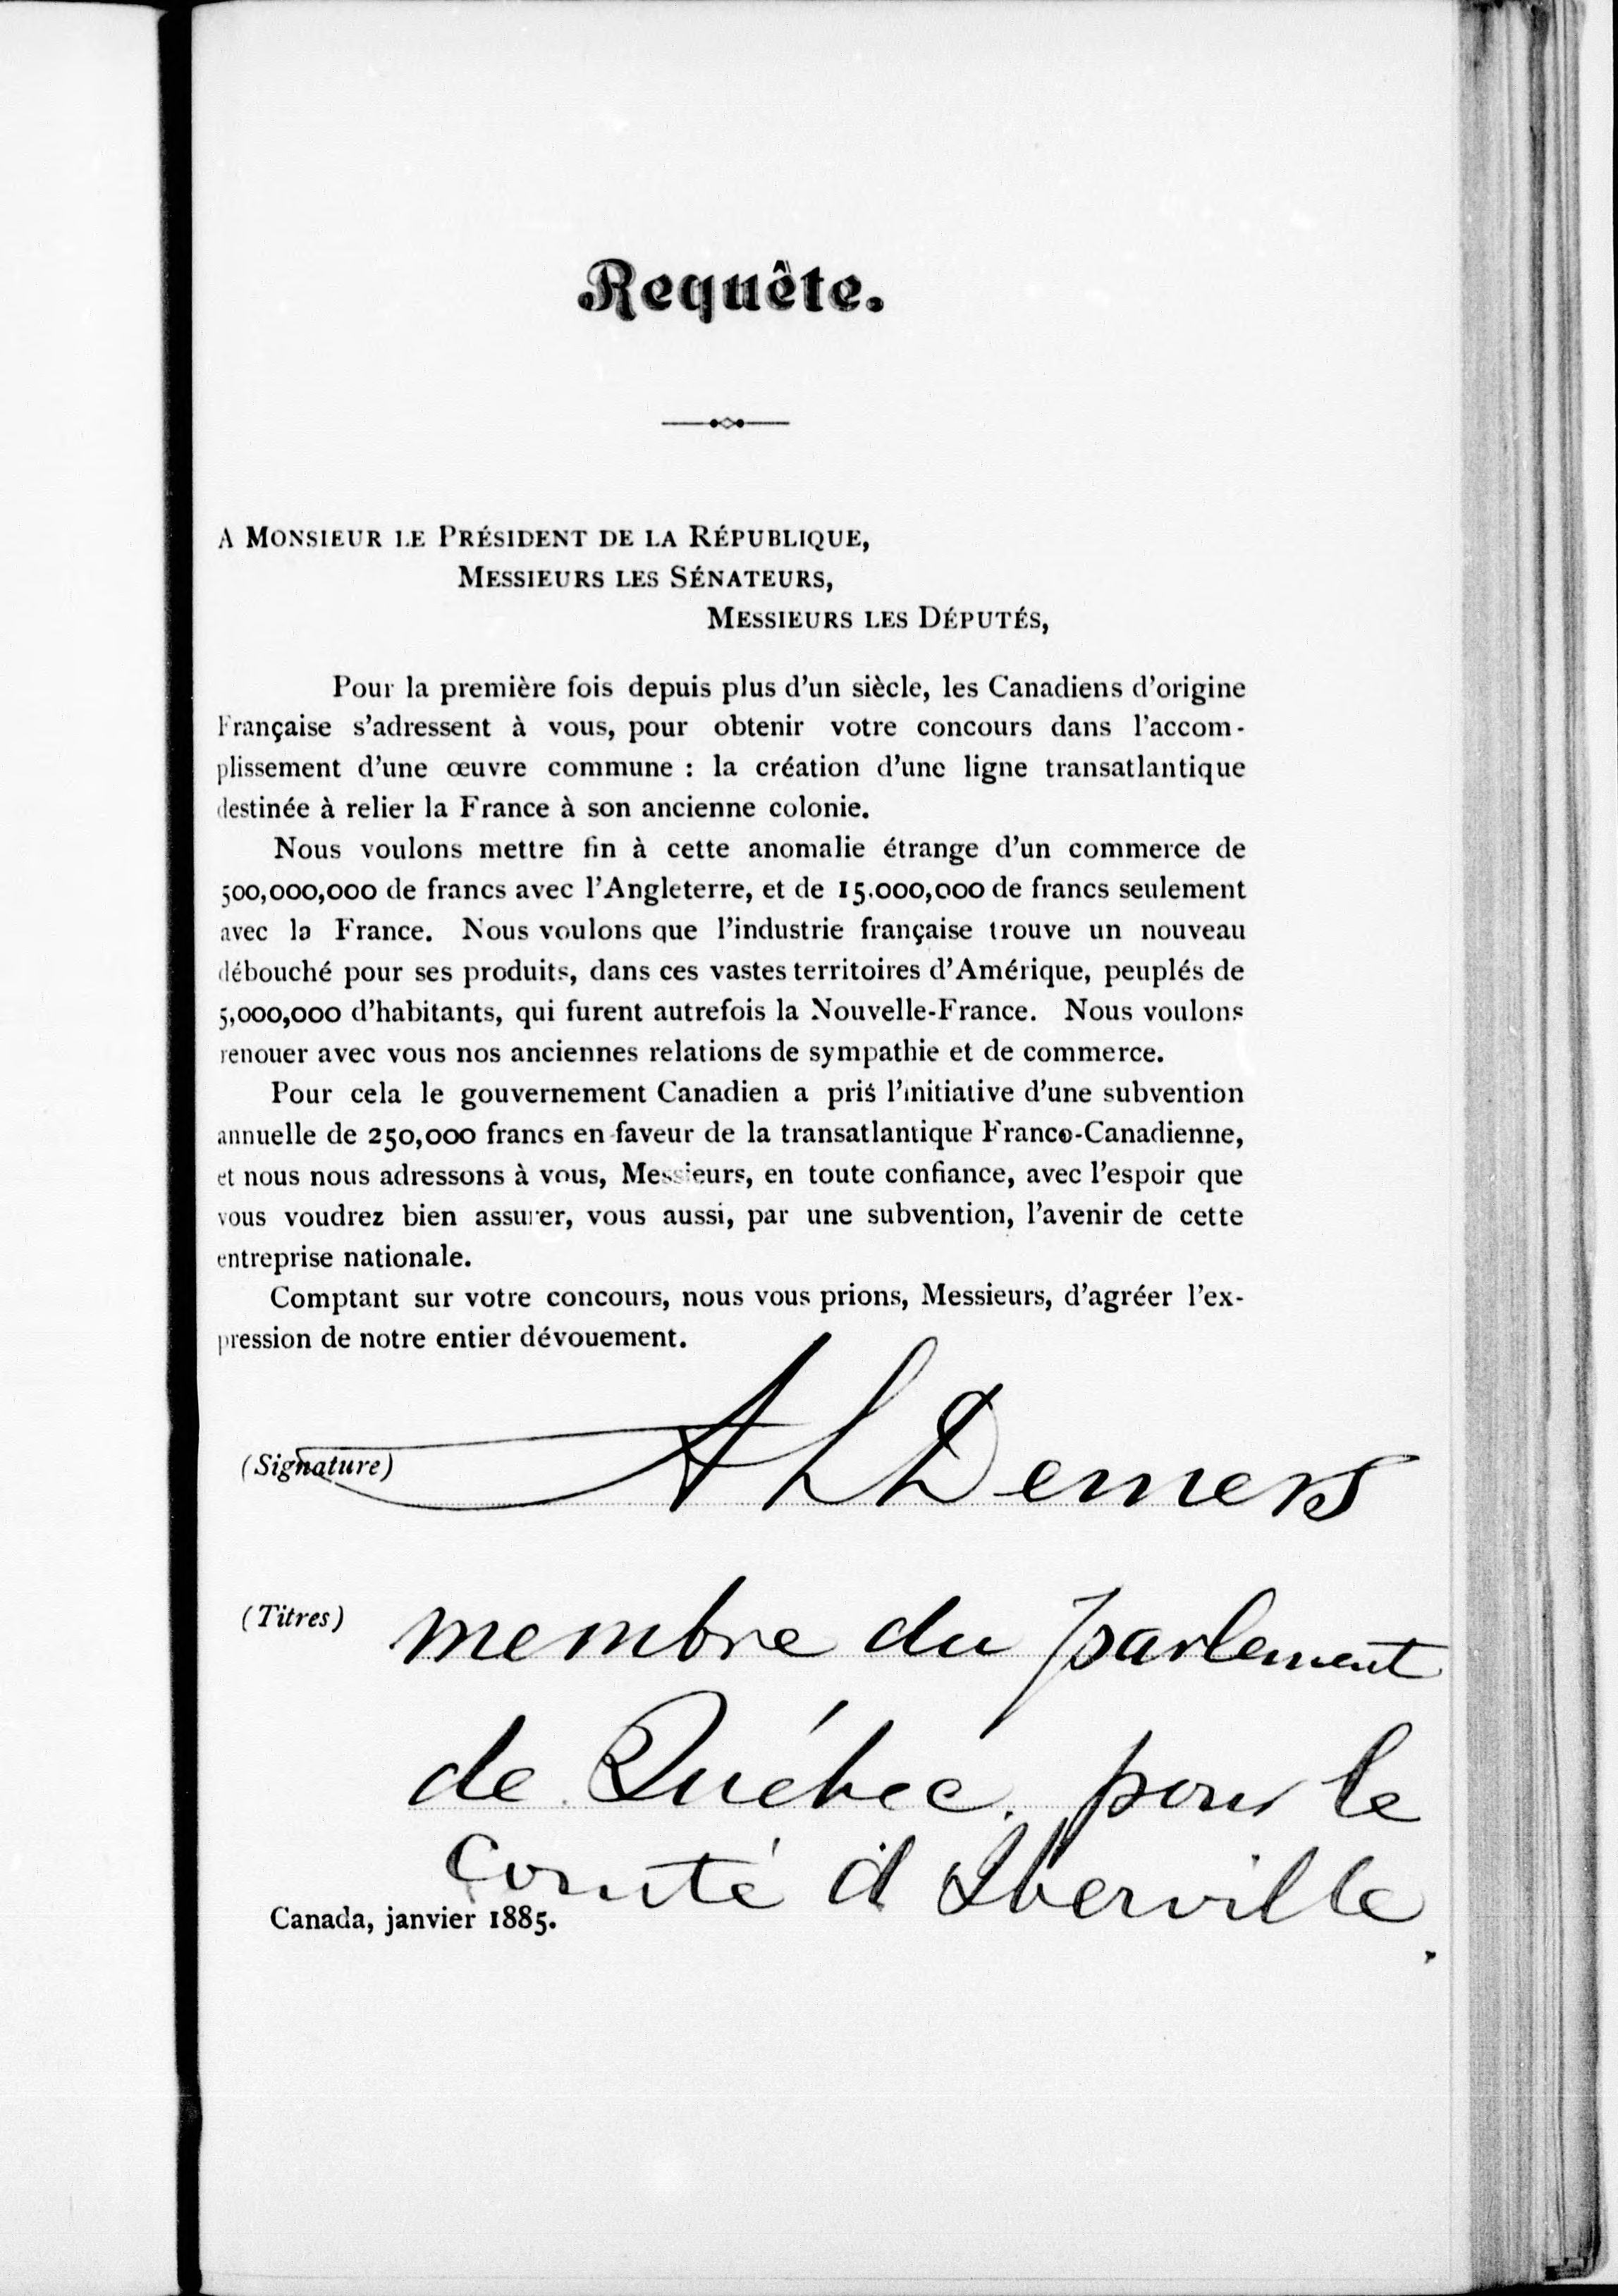 Requête.
A Monsieur le Président de la République,
Messieurs les Sénateurs,
Messieurs les Députés,
Pour la première fois depuis plus d'un siècle, les Canadiens d'origine
Française s'adressent à vous, pour obtenir votre concours dans l'accom-
plissement d'une œuvre commune : la création d'une ligne transatlantique
destinée à relier la France à son ancienne colonie.
Nous voulons mettre fin à cette anomalie étrange d'un commerce de
500,000,000 de francs avec l'Angleterre, et de 15.000,000 de francs seulement
avec la France. Nous voulons que l'industrie française trouve un nouveau
débouché pour ses produits, dans ces vastes territoires d'Amérique, peuplés de
5,000,000 d'habitants, qui furent autrefois la Nouvelle-France. Nous voulons
renouer avec vous nos anciennes relations de sympathie et de commerce.
Pour cela le gouvernement Canadien a pris l'initiative d'une subvention
annuelle de 250,000 francs en faveur de la transatlantique Franco-Canadienne,
et nous nous adressons à vous, Messieurs, en toute confiance, avec l'espoir que
vous voudrez bien assurer, vous aussi, par une subvention, l'avenir de cette
entreprise nationale.
Comptant sur votre concours, nous vous prions, Messieurs, d'agréer l'ex-
pression de notre entier dévouement.
(Signature) A L Demers
(Titres) membre du parlement
de Québec. pour le
comté d'Iberville.
Canada, janvier 1885.